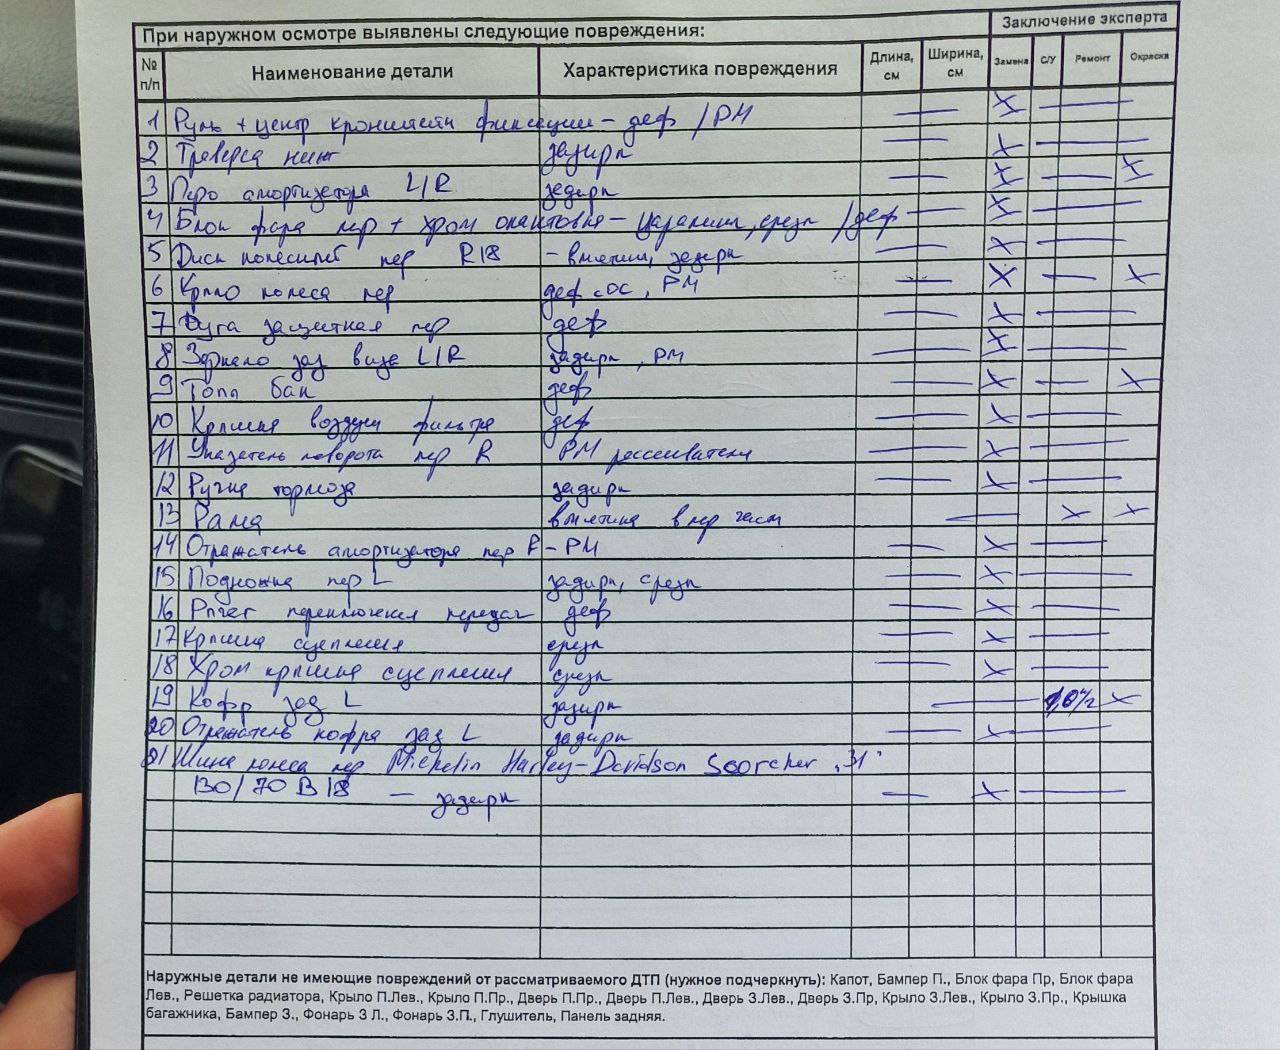 При наружном осмотре выявлены следующие повреждения: Заключение эксперта
№ п/п Наименование детали Характеристика повреждения Длина, см Ширина, см Замена С/У Ремонт Окраска
1 Руль + центр кронштейн фиксации – деф / РМ
2 Траверса нижн задиры
3 Перо амортизатора L/R задиры
4 Блок фара пер + хром окантовка – царапины, срезы / деф
5 Диск колесный пер R18 – вмятины, задиры
6 Крыло колеса пер деф сос, РМ
7 Дуга защитная пер деф
8 Зеркало зад вида L/R задиры, РМ
9 Топл бак деф
10 Крышка воздушн фильтра деф
11 Указатель поворота пер R РМ рассеивателя
12 Ручка тормоза задиры
13 Рама вмятина в пер части
14 Отражатель амортизатора пер R – РМ
15 Подножка пер L задиры, срезы
16 Рычаг переключения передач деф
17 Крышка сцепления срезы
18 Хром крышка сцепления срезы
19 Кофр зад L задиры
20 Отражатель кофра зад L задиры
21 Шина колеса пер Michelin Harley-Davidson Scorcher "31"
130/70 B 18 – задиры
Наружные детали не имеющие повреждений от рассматриваемого ДТП (нужное подчеркнуть): Капот, Бампер П., Блок фара Пр, Блок фара
Лев., Решетка радиатора, Крыло П.Лев., Крыло П.Пр., Дверь П.Пр., Дверь П.Лев., Дверь З.Лев., Дверь З.Пр, Крыло З.Лев., Крыло З.Пр., Крышка
багажника, Бампер З., Фонарь З Л., Фонарь З.П., Глушитель, Панель задняя.